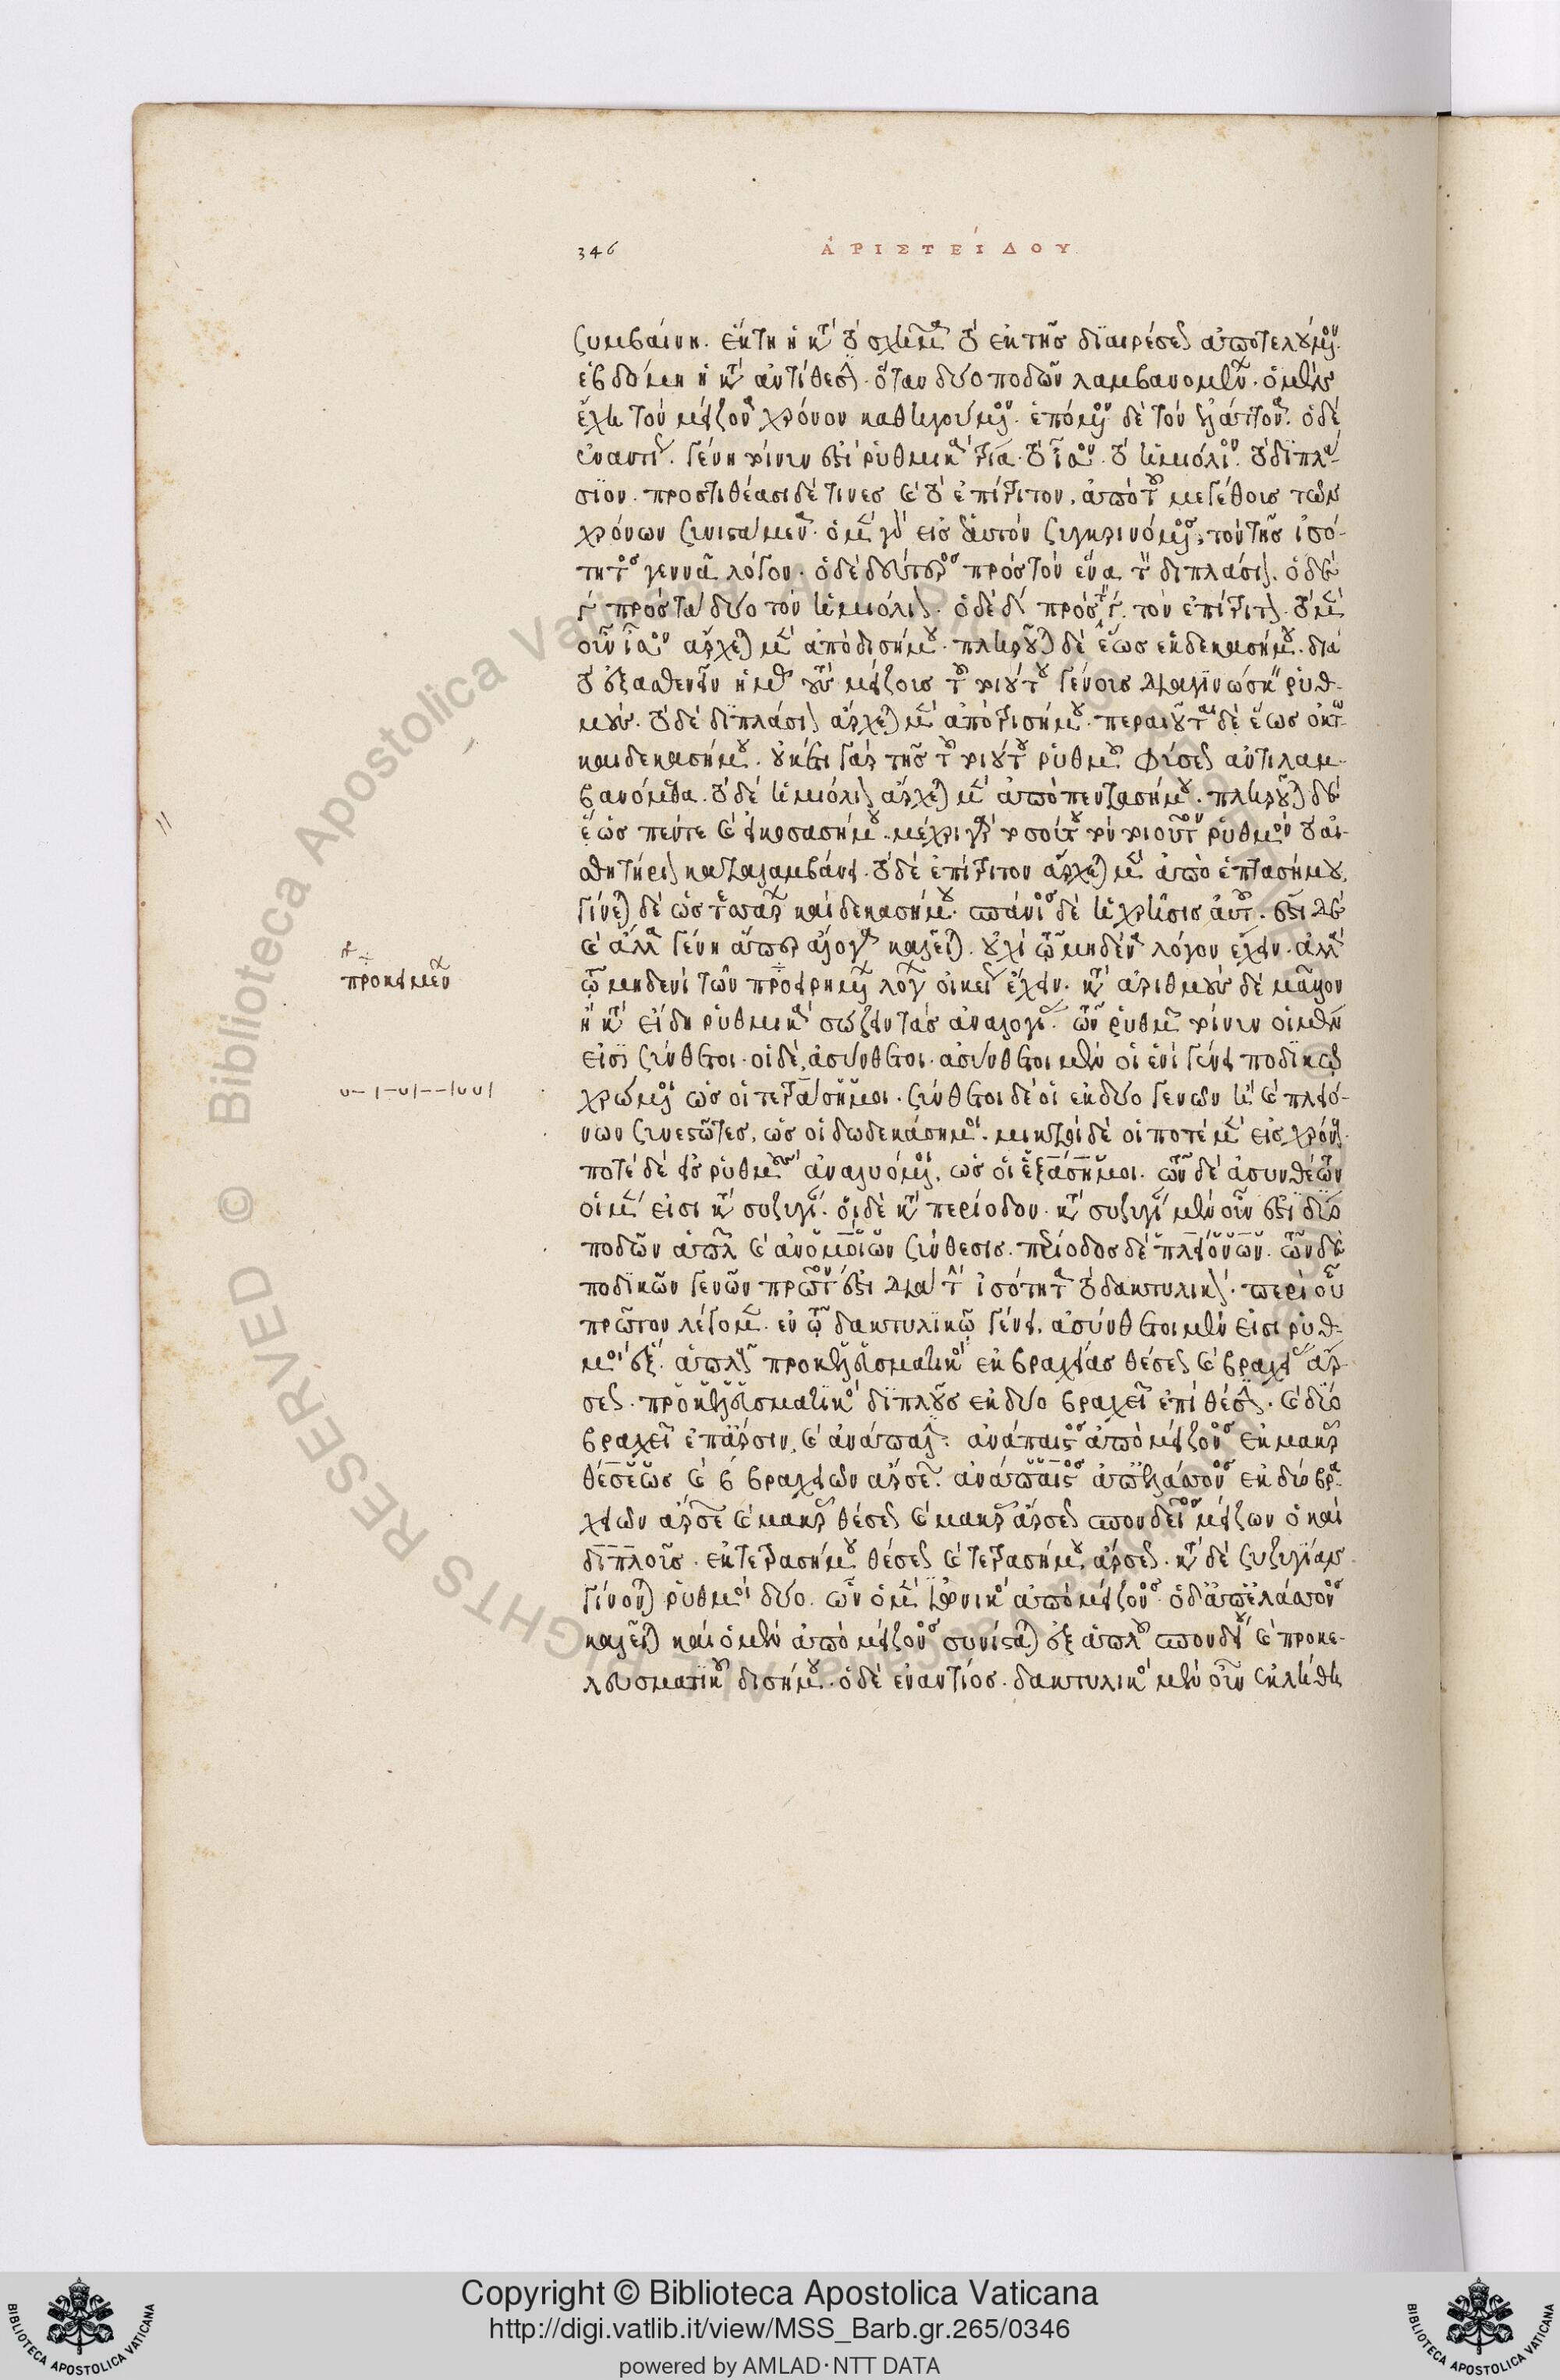 346 ἈΡΙΣΤΕΊΔΟΥ
συμβαίνη. ἕκτη ἡ κατὰ τὸ σχῆμα τὸ ἐκ τῆς διαιρέσεως ἀποτελούμενον.
ἑβδόμη ἡ κατὰ ἀντίθεσιν. ὅταν δύο ποδῶν λαμβανομένων. ὁ μὲν
ἔχη τὸν μείζονα χρόνον καθηγούμενον. ἑπόμενον δὲ τὸν ἐλάττονα. ὁ δὲ
ἐναντίως. γένη τοίνυν ἐστὶ ῥυθμικὰ τρία. τὸ ἴσον. τὸ ἡμιόλιον. τὸ διπλά-
σιον. προστιθέασι δέ τινες καὶ τὸ ἐπίτριτον, ἀπὸ τοῦ μεγέθους τῶν
χρόνων συνιστάμενα. ὁ μὲν γὰρ εἷς ἑαυτὸν συγκρινόμενος, τὸν τῆς ἰσό-
τητος γεννᾶ λόγον. ὁ δὲ δεύτερος πρὸς τὸν ἕνα τὸν διπλάσιον. ὁ δὲ
γ΄ πρὸς τὰ δύο τὸν ἡμιόλιον. ὁ δὲ δ΄ πρὸς τὰ γ΄. τὸν ἐπίτριτον. τὸ μὲν
οὖν ἴσον ἄρχεται μὲν ἀπὸ δισήμου. πληροῦται δὲ ἕως ἑκδεκασήμου. διὰ
τὸ ἐξασθενεῖν ἡμᾶς τοὺς μείζους τοῦ τοιούτου γένους διαγινώσκειν ῥυθ-
μούς. τὸ δὲ διπλάσιον ἄρχεται μὲν ἀπὸ τρισήμου. περαιοῦται δὲ ἕως ὀκτω-
καιδεκασήμου. οὐκέτι γὰρ τῆς τοῦ τοιούτου ῥυθμοῦ φύσεως ἀντιλαμ-
βανόμεθα. τὸ δὲ ἡμιόλιον ἄρχεται μὲν ἀπὸ πεντασήμου. πληροῦται δὲ
ἕως πέντε καὶ εἰκοσασήμου. μέχρι γὰρ τοσούτου τὸν τοιοῦτον ῥυθμὸν τὸ αἰ-
σθητήριον καταλαμβάνει. τὸ δὲ ἐπίτριτον ἄρχεται μὲν ἀπὸ ἑπτασήμου,
γίνεται δὲ ὡς τεσσαρεσκαιδεκασήμου. σπάνιος δὲ ἡ χρῆσις αὐτοῦ. ἔστι δὲ
καὶ ἄλλα γένη ἅπερ ἄλογα καλεῖται. οὐχὶ τῷ μηδένα λόγον ἔχειν. ἀλλὰ
τῷ μηδενὶ τῶν προειρημένων λόγων οἰκείως ἔχειν. κατὰ ἀριθμοὺς δὲ μᾶλλον
προκειμένων
ἢ κατὰ εἴδη ῥυθμικὰ σώζειν τὰς ἀναλογίας. τῶν ῥυθμῶν τοίνυν οἱ μὲν
εἰσὶ σύνθετοι. οἱ δὲ, ἀσύνθετοι. ἀσύνθετοι μὲν οἱ ἑνὶ γένει ποδικῷ
χρώμενοι ὡς οἱ τετράσημοι. σύνθετοι δὲ οἱ ἐκ δύο γενῶν ἢ καὶ πλειό-
∪–|–∪|––|∪∪|
νων συνεστῶτες, ὡς οἱ δωδεκάσημοι. μικτοὶ δὲ οἱ ποτὲ μὲν εἰς χρόνους.
ποτὲ δὲ εἰς ῥυθμοὺς ἀναλυόμενοι, ὡς οἱ ἑξάσημοι. τῶν δὲ ἀσυνθέτων
οἱ μέν εἰσι κατὰ συζυγίαν. οἱ δὲ κατὰ περίοδον. κατὰ συζυγίαν μὲν οὖν ἐστι δύο
ποδῶν ἁπλῶν καὶ ἀνομοίων σύνθεσις. περίοδος δὲ πλειόνων. τῶν δὲ
ποδικῶν γενῶν πρῶτον ἐστι διὰ τὴν ἰσότητα τὸ δακτυλικὸν. περὶ οὗ
πρῶτον λέγομεν. ἐν τῷ δακτυλικῷ γένει. ἀσύνθετοι μὲν εἰσι ῥυθ-
μοὶ ἕξ. ἁπλοῦς προκελευσματικὸς ἐκ βραχείας θέσεως καὶ βραχείας ἄρ-
σεως. προκελευσματικὸς διπλοῦς ἐκ δύο βραχειῶν ἐπὶ θέσιν. καὶ δύο
βραχειῶν ἐπ᾽ ἄρσιν, καὶ ἀνάπαλιν. ἀνάπαιστος ἀπὸ μείζονος ἐκ μακρᾶς
θέσεως καὶ β βραχειῶν ἄρσεων. ἀνάπαιστος ἀπ᾽ ἐλάσσονος ἐκ δύο βρα-
χειῶν ἄρσεων καὶ μακρᾶς θέσεως καὶ μακρᾶς ἄρσεως σπονδεῖος μείζων ὁ καὶ
διπλοῦς. ἐκ τετρασήμου θέσεως καὶ τετρασήμου ἄρσεως. κατὰ δὲ συζυγίαν
γίνονται ῥυθμοὶ δύο. ὧν ὁ μὲν ἰωνικὸς ἀπὸ μείζονος. ὁ δ᾽ ἀπ᾽ ἐλάσσονος
καλεῖται καὶ ὁ μὲν ἀπὸ μείζονος συνίσταται ἐξ ἁπλοῦ σπονδείου καὶ προκε-
λευσματικοῦ δισήμου. ὁ δὲ ἐναντίος. δακτυλικὸν μὲν οὖν ἐκλήθη
Copyright © Biblioteca Apostolica Vaticana
http://digi.vatlib.it/view/MSS_Barb.gr.265/0346
powered by AMLAD·NTT DATA
BIBLIOTECA APOSTOLICA VATICANA
BIBLIOTECA APOSTOLICA VATICANA